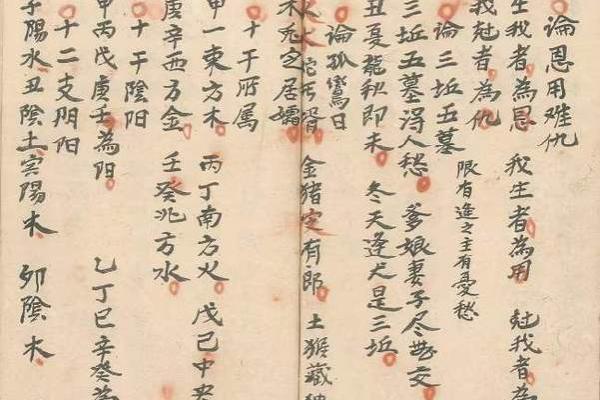 論恩用难仇
生我者為恩 我生者為用 尅我者為
我尅者為仇
論三坵五墓 限有逢之主有憂愁
三坵五墓淂人愁 爹娘妻子尽無交
丑夏龍秋即未 冬天逢犬是三坵
論孤鸞日
火 金猪定有郎 土猴藏
木 居孀
十干所属
甲 一東方木 丙丁南方火 戊己中央
庚辛西方金 壬癸北方水
十干陰阳
甲丙戊庚壬為阳 乙丁己辛癸為
十二支阴阳
子陽水丑陰土寅陽木 卯陰木